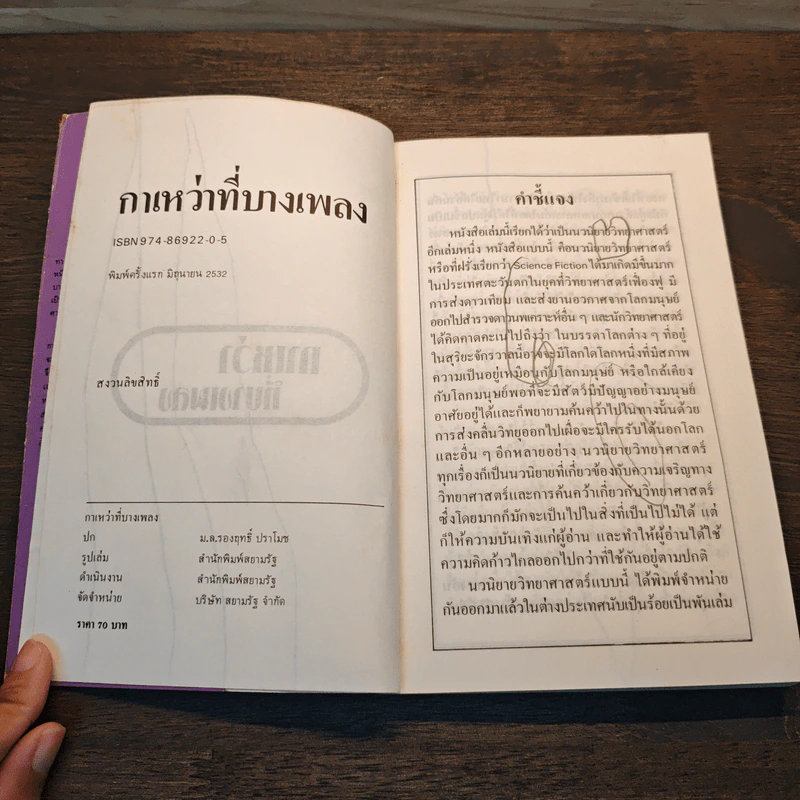 กาเหว่าที่บางเพลง
ISBN 974-86922-0-5
พิมพ์ครั้งแรก มิถุนายน 2532
สงวนลิขสิทธิ์
กาเหว่าที่บางเพลง
ปก ม.ล.รองฤทธิ์ ปราโมช
รูปเล่ม สำนักพิมพ์สยามรัฐ
ดำเนินงาน สำนักพิมพ์สยามรัฐ
จัดจำหน่าย บริษัท สยามรัฐ จำกัด
ราคา 70 บาท
คำชี้แจง
หนังสือเล่มนี้เรียกได้ว่าเป็นนวนิยายวิทยาศาสตร์
อีกเล่มหนึ่ง หนังสือแบบนี้ คือนวนิยายวิทยาศาสตร์
หรือที่ฝรั่งเรียกว่า Science Fiction ได้มาเกิดมีขึ้นมาก
ในประเทศตะวันตกในยุคที่วิทยาศาสตร์เฟื่องฟู มี
การส่งดาวเทียม และส่งยานอวกาศจากโลกมนุษย์
ออกไปสำรวจดาวนพเคราะห์อื่น ๆ และนักวิทยาศาสตร์
ได้คิดคาดคะเนไปถึงว่า ในบรรดาโลกต่าง ๆ ที่อยู่
ในสุริยะจักรวาลนี้อาจจะมีโลกใดโลกหนึ่งที่มีสภาพ
ความเป็นอยู่เหมือนกับโลกมนุษย์ หรือใกล้เคียง
กับโลกมนุษย์พอที่จะมีสัตว์มีปัญญาอย่างมนุษย์
อาศัยอยู่ได้และก็พยายามค้นคว้าไปในทางนั้นด้วย
การส่งคลื่นวิทยุออกไปเผื่อจะมีใครรับได้นอกโลก
และอื่น ๆ อีกหลายอย่าง นวนิยายวิทยาศาสตร์
ทุกเรื่องก็เป็นนวนิยายที่เกี่ยวข้องกับความเจริญทาง
วิทยาศาสตร์และการค้นคว้าเกี่ยวกับวิทยาศาสตร์
ซึ่งโดยมากก็มักจะเป็นไปในสิ่งที่เป็นไปไม่ได้ แต่
ก็ให้ความบันเทิงแก่ผู้อ่าน และทำให้ผู้อ่านได้ใช้
ความคิดก้าวไกลออกไปกว่าที่ใช้กันอยู่ตามปกติ
นวนิยายวิทยาศาสตร์แบบนี้ ได้พิมพ์จำหน่าย
กันออกมาแล้วในต่างประเทศนับเป็นร้อยเป็นพันเล่ม